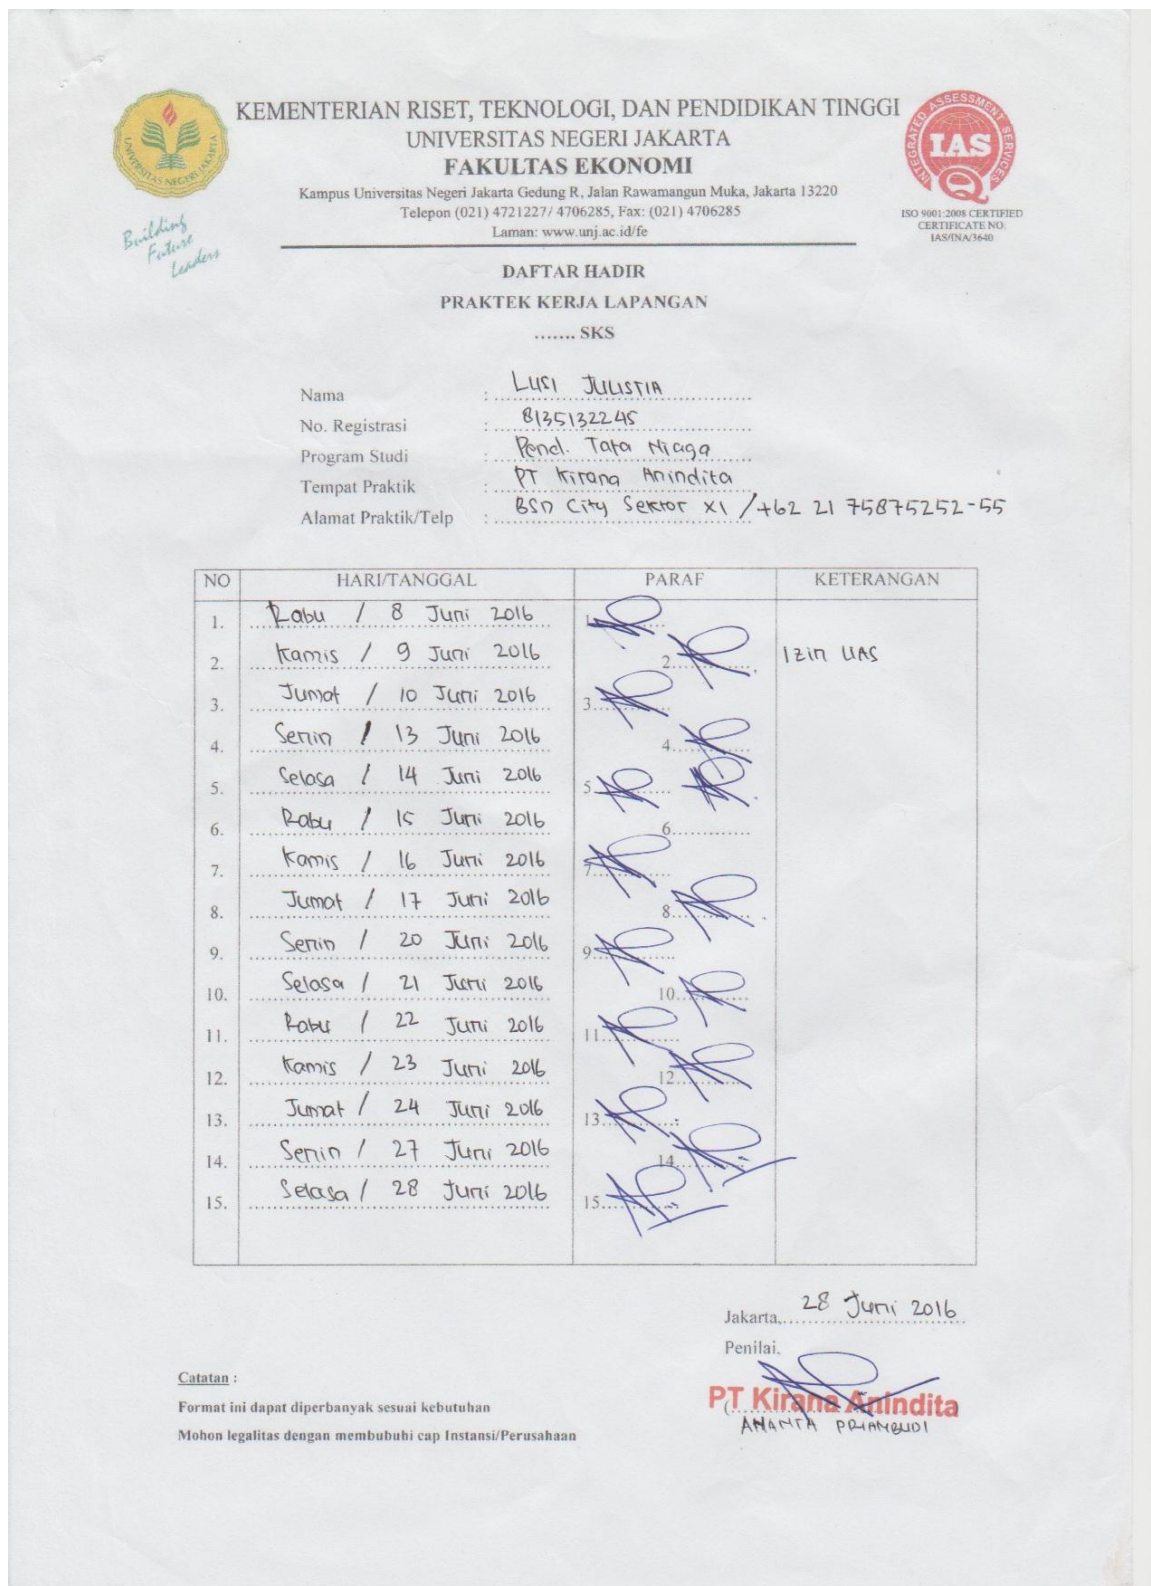 KEMENTERIAN RISET, TEKNOLOGI, DAN PENDIDIKAN TINGGI
UNIVERSITAS NEGERI JAKARTA
FAKULTAS EKONOMI
Kampus Universitas Negeri Jakarta Gedung R, Jalan Rawamangun Muka, Jakarta 13220
Telepon (021) 4721227/ 4706285, Fax: (021) 4706285
Laman: www.unj.ac.id/fe
UNIVERSITAS NEGERI JAKARTA
Building
Future
Leaders
INTEGRATED ASSESSMENT SERVICES
IAS
ISO 9001:2008 CERTIFIED
CERTIFICATE NO:
IAS/INA/3640
DAFTAR HADIR
PRAKTEK KERJA LAPANGAN
....... SKS
Nama : LUSI JULISTIA
No. Registrasi : 8135132245
Program Studi : Pend. Tata Niaga
Tempat Praktik : PT Kirana Anindita
Alamat Praktik/Telp : BSD City Sektor XI / +62 21 75875252-55
NO HARI/TANGGAL PARAF KETERANGAN
1. Rabu / 8 Juni 2016 1.
2. Kamis / 9 Juni 2016 2. Izin UAS
3. Jumat / 10 Juni 2016 3.
4. Senin / 13 Juni 2016 4.
5. Selasa / 14 Juni 2016 5.
6. Rabu / 15 Juni 2016 6.
7. Kamis / 16 Juni 2016 7.
8. Jumat / 17 Juni 2016 8.
9. Senin / 20 Juni 2016 9.
10. Selasa / 21 Juni 2016 10.
11. Rabu / 22 Juni 2016 11.
12. Kamis / 23 Juni 2016 12.
13. Jumat / 24 Juni 2016 13.
14. Senin / 27 Juni 2016 14.
15. Selasa / 28 Juni 2016 15.
Jakarta, 28 Juni 2016
Penilai,
PT Kirana Anindita
ANANTA PRIAMBUDI
Catatan :
Format ini dapat diperbanyak sesuai kebutuhan
Mohon legalitas dengan membubuhi cap Instansi/Perusahaan